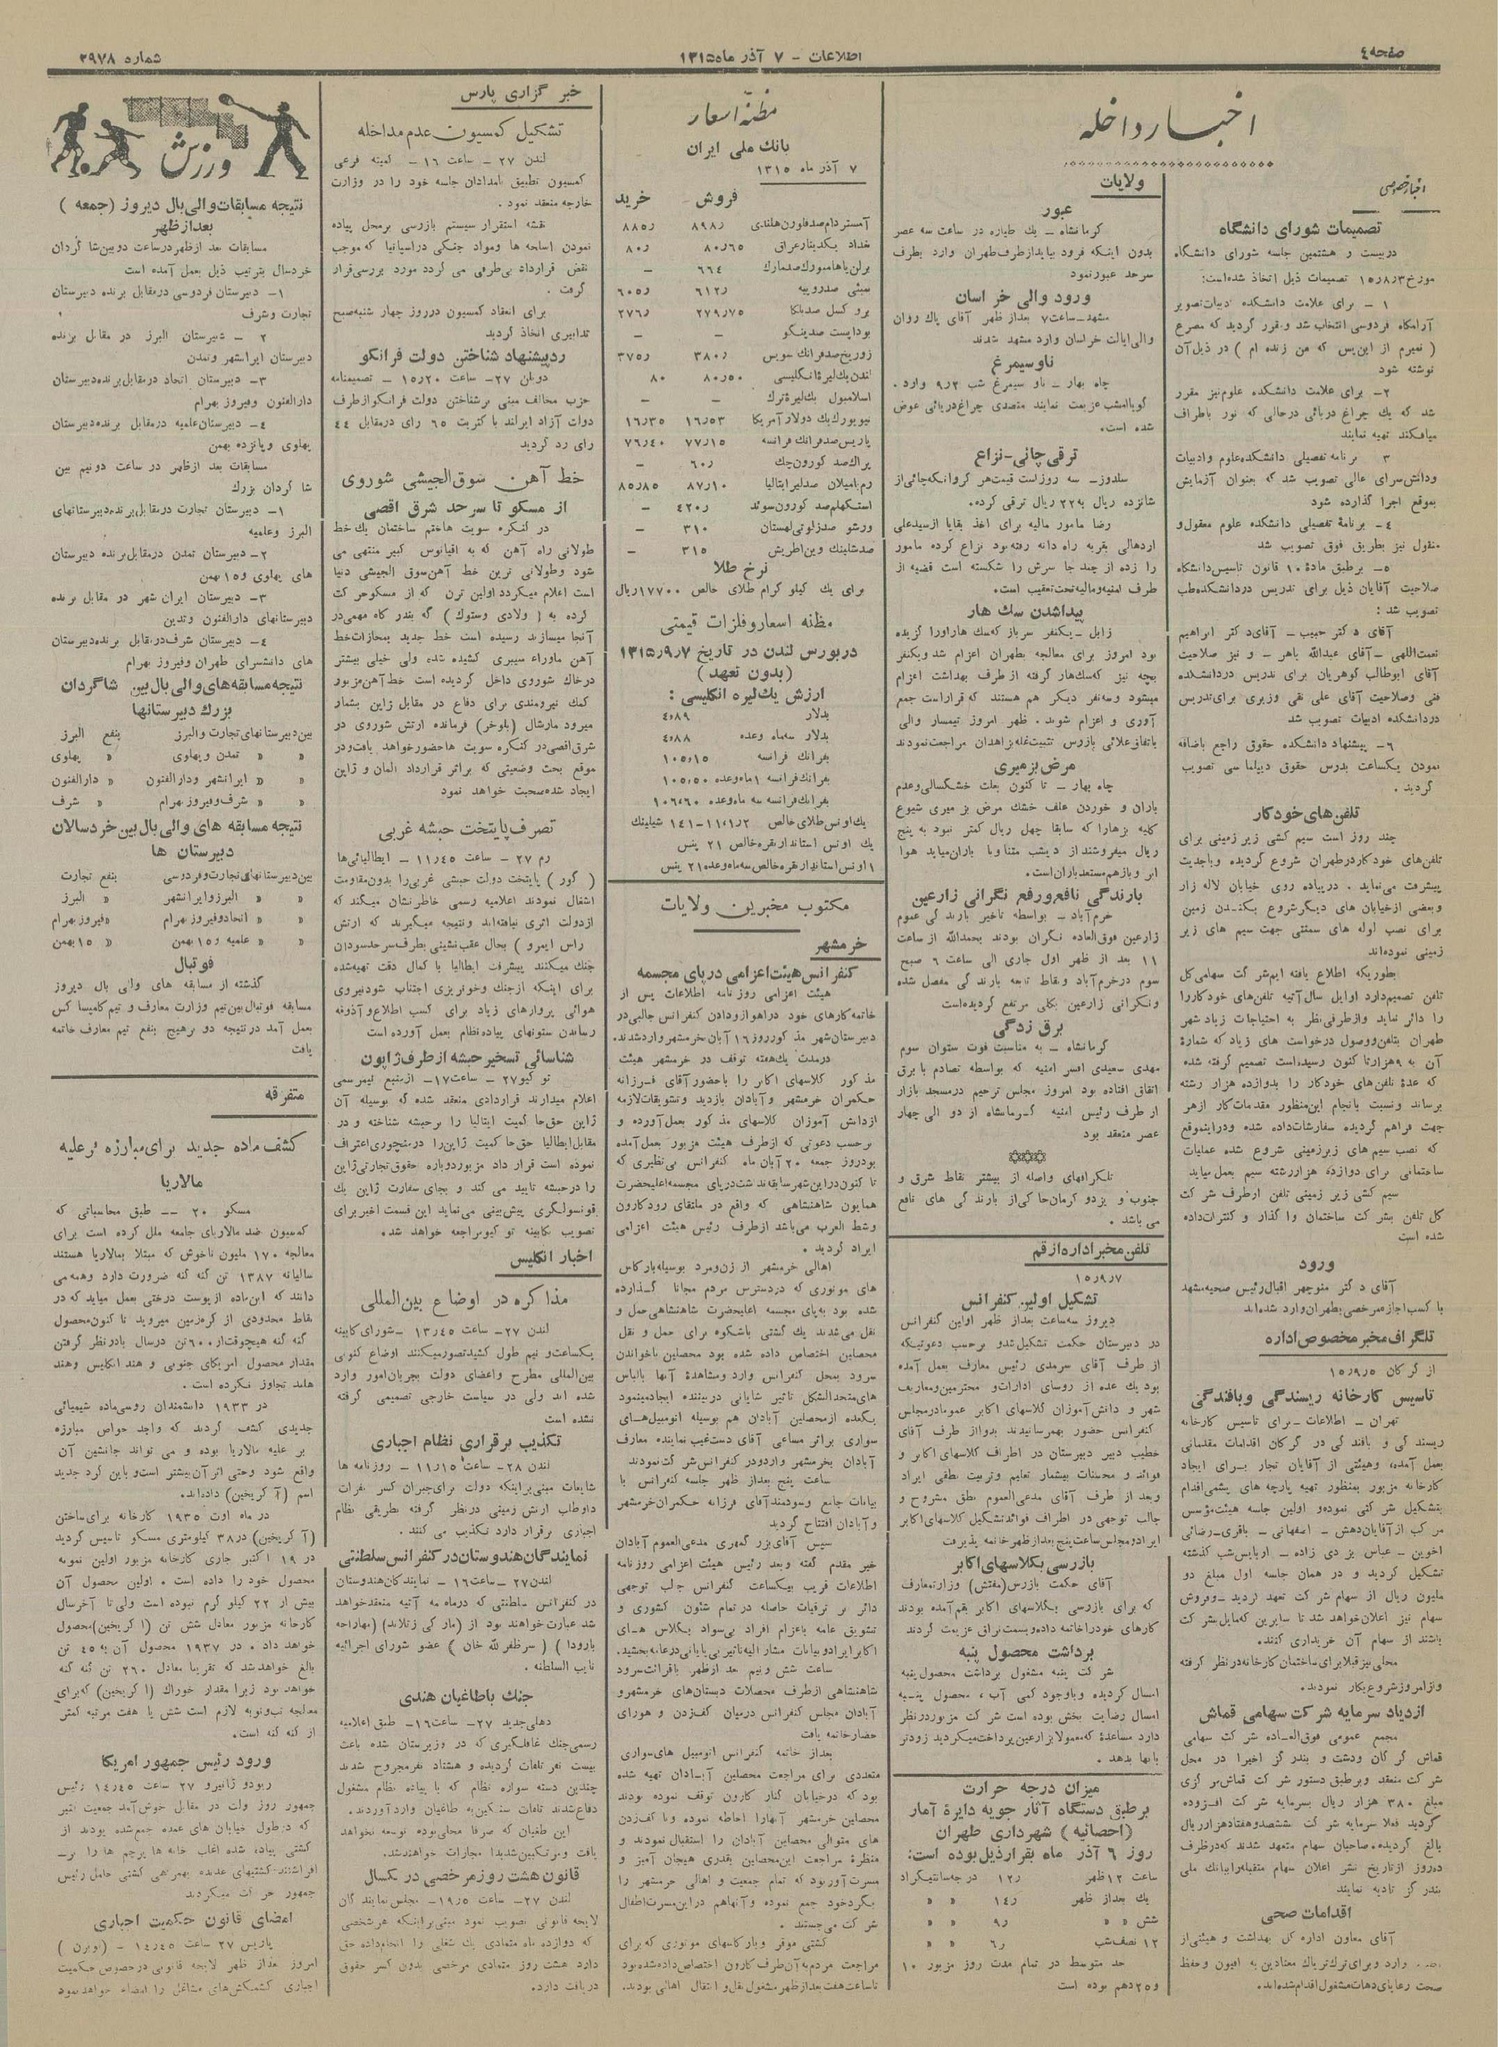 صفحه ٤
اطلاعات - ٧ آذر ماه ١٣١٥
شماره ٢٩٧٨
اخبار داخله
اخبار خصوصی
تصمیمات شورای دانشگاه
در بیست و هشتمین جلسه شورای دانشگاه
مورخ ١٥ر٨ر٣ تصمیمات ذیل اتخاذ شده است:
١ - برای علامت دانشکده ادبیات تصویر
آرامگاه فردوسی انتخاب شد و مقرر گردید که مصرع
( نمیرم از این پس که من زنده ام ) در ذیل آن
نوشته شود
٢- برای علامت دانشکده علوم نیز مقرر
شد که یك چراغ دریائی در حالی که نور باطراف
میافکند تهیه نمایند
٣ برنامه تفصیلی دانشکده علوم و ادبیات
و دانش سرای عالی تصویب شد که بعنوان آزمایش
بموقع اجرا گذارده شود
٤- برنامهٔ تفصیلی دانشکده علوم معقول و
منقول نیز بطریق فوق تصویب شد
٥- بر طبق مادهٔ ١٠ قانون تاسیس دانشگاه
صلاحیت آقایان ذیل برای تدریس در دانشکده طب
تصویب شد :
آقای دکتر حبیب - آقای دکتر ابراهیم
نعمت اللهی - آقای عبدالله باهر - و نیز صلاحیت
آقای ابوطالب گوهریان برای تدریس در دانشکده
فنی و صلاحیت آقای علی نقی وزیری برای تدریس
در دانشکده ادبیات تصویب شد
٦- پیشنهاد دانشکده حقوق راجع باضافه
نمودن یکساعت بدرس حقوق دیپلماسی تصویب
گردید .
تلفن های خودکار
چند روز است سیم کشی زیر زمینی برای
تلفن های خودکار در طهران شروع گردیده و باجدیت
پیشرفت می نماید . در پیاده روی خیابان لاله زار
و بعضی از خیابان های دیگر شروع بکندن زمین
برای نصب لوله های سمنتی جهت سیم های زیر
زمینی نموده اند
بطوریکه اطلاع یافته ایم شرکت سهامی کل
تلفن تصمیم دارد اوایل سال آتیه تلفن های خودکار را
را دائر نماید و از طرفی نظر به احتیاجات زیاد شهر
طهران بتلفن و وصول درخواست های زیاد که شمارهٔ
آن به ٩ هزار تا کنون رسیده است تصمیم گرفته شده
که عدهٔ تلفن های خودکار را بدوازده هزار رشته
برساند و نسبت بانجام این منظور مقدمات کار از هر
جهت فراهم گردیده سفارشات داده شده و در اینموقع
که نصب سیم های زیر زمینی شروع شده عملیات
ساختمانی برای دوازده هزار رشته سیم بعمل میاید
سیم کشی زیر زمینی تلفن از طرف شرکت
کل تلفن بشرکت ساختمان واگذار و کنترات داده
شده است
ورود
آقای دکتر منوچهر اقبال رئیس صحیه مشهد
با کسب اجازه مرخصی بطهران وارد شده اند
تلگراف مخبر مخصوص اداره
از گرگان ١٥ر٩ر٥
تاسیس کارخانه ریسندگی و بافندگی
تهران - اطلاعات - برای تاسیس کارخانه
ریسندگی و بافندگی در گرگان اقدامات مقدماتی
بعمل آمده، و هیئتی از آقایان تجار برای ایجاد
کارخانه مزبور بمنظور تهیه پارچه های پشمی اقدام
بتشکیل شرکتی نموده و اولین جلسه هیئت مؤسس
مرکب از آقایان دهش - اصفهانی - باقری - رضائی
اخوین - عباس یزدی زاده - اربابش شب گذشته
تشکیل گردید و در همان جلسه اول مبلغ دو
ملیون ریال از سهام شرکت تعهد گردید - و فروش
سهام نیز اعلان خواهد شد تا سایرین که مایل بشرکت
باشند از سهام آن خریداری کنند.
محلی نیز قبلا برای ساختمان کارخانه در نظر گرفته
و از امروز شروع بکار نمودند.
ازدیاد سرمایه شرکت سهامی قماش
مجمع عمومی فوق العاده شرکت سهامی
قماش گرگان و دشت و بندر گز اخیرا در محل
شرکت منعقد و بر طبق دستور شرکت قماش مرکزی
مبلغ ٣٨٠ هزار ریال بسرمایه شرکت افزوده
گردید فعلا سرمایه شرکت ششصد و هفتاد هزار ریال
بالغ گردیده. صاحبان سهام متعهد شدند که در ظرف
ده روز از تاریخ نشر اعلان سهام متقبله را ببانك ملی
بندر گز تادیه نمایند
اقدامات صحی
آقای معاون اداره کل بهداشت و هیئتی از
وارد و برای ترك تریاك معتادین به افیون و حفظ
صحت رعایای دهات مشغول اقدام شده اند.
ولایات
عبور
کرمانشاه - یك طیاره در ساعت سه عصر
بدون اینکه فرود بیاید از طرف طهران وارد بطرف
سرحد عبور نمود
ورود والی خراسان
مشهد - ساعت ٧ بعد از ظهر آقای پاك روان
والی ایالت خراسان وارد مشهد شدند
ناو سیمرغ
چاه بهار - ناو سیمرغ شب ٩ر٢ وارد .
گویا امشب عزیمت نمایند متصدی چراغ دریائی عوض
شده است .
ترقی چائی - نزاع
سلدوز - سه روز است قیمت هر گروانکه چائی از
شانزده ریال به ٢٢ ریال ترقی کرده .
رضا مامور مالیه برای اخذ بقایا از سید علی
اردهالی بقریه راه دانه رفته بود نزاع کرده مامور
را زده از چند جا سرش را شکسته است قضیه از
طرف امنیه و مالیه تحت تعقیب است .
پیدا شدن سگ هار
زابل - یکنفر سرباز که سگ هار او را گزیده
بود امروز برای معالجه بطهران اعزام شد و یکنفر
بچه نیز که سگ هار گرفته از طرف بهداشت اعزام
میشود و سه نفر دیگر هم هستند که قرار است جمع
آوری و اعزام شوند . ظهر امروز تیمسار والی
باتفاق علائی بازرس تثبیت غله بزاهدان مراجعت نمودند
مرض بز میری
چاه بهار - تا کنون بعلت خشگسالی و عدم
باران و خوردن علف خشك مرض بز میری شیوع
کلیه بزها را که سابقا چهل ریال کمتر نبود به پنج
ریال میفروشند از دیشب متناوبا باران میاید هوا
ابر و باز هم مستعد باران است .
بارندگی نافع و رفع نگرانی زارعین
خرم آباد - بواسطه تاخیر بارندگی عموم
زارعین فوق العاده نگران بودند بحمدالله از ساعت
١١ بعد از ظهر اول جاری الی ساعت ٦ صبح
سوم در خرم آباد و نقاط تابعه بارندگی مفصل شده
و نگرانی زارعین بکلی مرتفع گردیده است
برق زدگی
کرمانشاه - به مناسبت فوت ستوان سوم
مهدی سعیدی افسر امنیه که بواسطه تصادم با برق
اتفاق افتاده بود امروز مجلس ترحیم در مسجد بازار
از طرف رئیس امنیه کرمانشاه از دو الی چهار
عصر منعقد بود
تلگرافهای واصله از بیشتر نقاط شرق و
جنوب و یزد و کرمان حاکی از بارندگی های نافع
می باشد .
تلفن مخبر اداره از قم
١٥ر٩ر٧
تشکیل اولین کنفرانس
دیروز سه ساعت بعد از ظهر اولین کنفرانس
در دبیرستان حکمت تشکیل شد و بر حسب دعوتیکه
از طرف آقای سرمدی رئیس معارف بعمل آمده
بود یك عده از روسای ادارات و محترمین و معاریف
شهر و دانش آموزان کلاسهای اکابر عموما در مجلس
کنفرانس حضور بهمرسانیدند بدوا از طرف آقای
خطیب دبیر دبیرستان در اطراف کلاسهای اکابر و
فوائد و محسنات بیشمار تعلیم و تربیت نطقی ایراد
و بعد از طرف آقای مدعی العموم نطق مشروح و
جالب توجهی در اطراف فوائد تشکیل کلاسهای اکابر
ایراد و مجلس ساعت پنج بعد از ظهر خاتمه پذیرفت
بازرسی بکلاسهای اکابر
آقای حکمت بازرس (مفتش) وزارت معارف
که برای بازرسی بکلاسهای اکابر بقم آمده بودند
کارهای خود را خاتمه داده و بسمت نراق عزیمت کردند
برداشت محصول پنبه
شرکت پنبه مشغول برداشت محصول پنبه
امسال گردیده و باوجود کمی آب، محصول پنبه
امسال رضایت بخش بوده است شرکت مزبور در نظر
دارد مساعدهٔ که معمولا بزارعین پرداخت میگردید زودتر
بآنها بدهد .
میزان درجه حرارت
بر طبق دستگاه آثار جویه دایرهٔ آمار
(احصائیه) شهرداری طهران
روز ٦ آذر ماه بقرار ذیل بوده است:
ساعت ١٢ ظهر ١٢ر درجه سانتیگراد
یك بعد از ظهر ١٤ر « «
شش « « ٩ر « «
١٢ نصف شب ٦ر « «
حد متوسط در تمام مدت روز مزبور ١٠
و ٢٥ دهم بوده است
مظنهٔ اسعار
بانك ملی ایران
٧ آذر ماه ١٣١٥
فروش خرید
آمستردام صد فلورن هلندی ٨٩٨ر ٨٨٥ر
بغداد یکدینار عراق ٨٠ر٦٥ ٨٠ر
برلن یا هامبورك صد مارك ٦٦٤ -
بمبئی صد روپیه ٦١٢ر ٦٠٥ر
بروکسل صد بلگا ٢٧٩ر٧٥ ٢٧٦ر
بوداپست صد پنگو - -
زوریخ صد فرانك سویس ٣٨٠ر ٣٧٥ر
لندن یك لیرهٔ انگلیسی ٨٠ر٥٠ ٨٠
اسلامبول یك لیرهٔ ترك - -
نیویورك یك دولار آمریکا ١٦ر٥٣ ١٦ر٣٥
پاریس صد فرانك فرانسه ٧٧ر١٥ ٧٦ر٤٠
پراك صد کورون چك ٦٠ر -
رم یا میلان صد لیر ایتالیا ٨٧ر١٠ ٨٥ر٨٥
استکهلم صد کورون سوئد ٤٢٠ر -
ورشو صد زلوتی لهستان ٣١٠ -
صد شلینك وین اطریش ٣١٥ -
نرخ طلا
برای یك کیلو گرام طلای خالص ١٧٧٠٠ ریال
مظنه اسعار و فلزات قیمتی
در بورس لندن در تاریخ ١٣١٥ر٩ر٧
(بدون تعهد)
ارزش یك لیره انگلیسی :
بدلار ٤ر٨٩
بدلار سه ماه وعده ٤ر٨٨
بفرانك فرانسه ١٠٥ر١٥
بفرانك فرانسه ١ ماه وعده ١٠٥ر٥٠
بفرانك فرانسه سه ماه وعده ١٠٦ر٦٠
یك اونس طلای خالص ١١ر١ر٢-١٤١ شیلینك
یك اونس استاندار نقره خالص ٢١ پنس
١ اونس استاندار نقره خالص سه ماه وعده ٢١ پنس
مکتوب مخبرین ولایات
خرمشهر
کنفرانس هیئت اعزامی در پای مجسمه
هیئت اعزامی روزنامه اطلاعات پس از
خاتمه کارهای خود در اهواز و دادن کنفرانس جالبی در
دبیرستان شهر مذکور روز ١٦ آبان بخرمشهر وارد شدند.
در مدت یك هفته توقف در خرمشهر هیئت
مذکور کلاسهای اکابر را با حضور آقای فرزانه
حکمران خرمشهر و آبادان بازدید و تشویقات لازمه
از دانش آموزان کلاسهای مذکور بعمل آورده و
بر حسب دعوتی که از طرف هیئت مزبور بعمل آمده
بود روز جمعه ٢٠ آبان ماه کنفرانس بی نظیری که
تا کنون در این شهر سابقه نداشت در پای مجسمه اعلیحضرت
همایون شاهنشاهی که واقع در ملتقای رود کارون
و شط العرب می باشد از طرف رئیس هیئت اعزامی
ایراد گردید .
اهالی خرمشهر از زن و مرد بوسیله بارکاس
های موتوری که در دسترس مردم مجانا گذارده
شده بود به پای مجسمه اعلیحضرت شاهنشاهی حمل و
نقل می شدند یك کشتی باشکوه برای حمل و نقل
محصلین اختصاص داده شده بود محصلین با خواندن
سرود بمحل کنفرانس وارد و مشاهدهٔ آنها با لباس
های متحدالشکل تاثیر شایانی در بیننده ایجاد مینمود
یکعده از محصلین آبادان هم بوسیله اتومبیل های
سواری بر اثر مساعی آقای دستغیب نماینده معارف
آبادان بخرمشهر وارد و در کنفرانس شرکت نمودند
ساعت پنج بعد از ظهر جلسه کنفرانس با
بیانات جامع و سودمند آقای فرزانه حکمران خرمشهر
و آبادان افتتاح گردید
سپس آقای بزرگمهری مدعی العموم آبادان
خیر مقدم گفته و بعد رئیس هیئت اعزامی روزنامه
اطلاعات قریب بیکساعت کنفرانس جالب توجهی
دائر بر ترقیات حاصله در تمام شئون کشوری و
تشویق عامه باعزام افراد بی سواد بکلاس های
اکابر ایراد و بیانات مشارالیه تاثیر بی پایانی در عامه بخشید.
ساعت شش و نیم بعد از ظهر با قرائت سرود
شاهنشاهی از طرف محصلات دبستان های خرمشهر و
آبادان مجلس کنفرانس در میان کف زدن و هورای
حضار خاتمه یافت
بعد از خاتمه کنفرانس اتومبیل های سواری
متعددی برای مراجعت محصلین آبادان تهیه شده
بود که در خیابان کنار کارون توقف نموده بودند
محصلین خرمشهر آنها را احاطه نموده و با کف زدن
های متوالی محصلین آبادان را استقبال نمودند و
منظرهٔ مراجعت این محصلین بقدری هیجان آمیز و
مسرت آور بود که تمام جمعیت و اهالی خرمشهر را
بگرد خود جمع نموده و آنها هم در این مسرت اطفال
شرکت می جستند .
کشتی موقر و بارکاسهای موتوری که برای
مراجعت مردم به آن طرف کارون اختصاص داده شده بود
تا ساعت هفت بعد از ظهر مشغول نقل و انتقال اهالی بودند.
خبر گزاری پارس
تشکیل کمسیون عدم مداخله
لندن ٢٧ - ساعت ١٦ - کمیته فرعی
کمسیون تطبیق بامدادان جلسه خود را در وزارت
خارجه منعقد نمود .
نقشه استقرار سیستم بازرسی بر محل پیاده
نمودن اسلحه ها و مواد جنگی در اسپانیا که موجب
نقض قرارداد بی طرفی می گردد مورد بررسی قرار
گرفت .
برای انعقاد کمسیون در روز چهار شنبه صبح
تدابیری اتخاذ گردید
رد پیشنهاد شناختن دولت فرانکو
دوبلن ٢٧ - ساعت ١٥ر٢٠ - تصمیمنامه
حزب مخالف مبنی بر شناختن دولت فرانکو از طرف
دولت آزاد ایرلند با کثریت ٦٥ رای در مقابل ٤٤
رای رد گردید
خط آهن سوق الجیشی شوروی
از مسکو تا سرحد شرق اقصی
در کنگره سویت ها ختم ساختمان یك خط
طولانی راه آهن که به اقیانوس کبیر منتهی می
شود و طولانی ترین خط آهن سوق الجیشی دنیا
است اعلام میگردد اولین ترن که از مسکو حرکت
کرده به ( ولادی وستوك ) که بندر گاه مهمی در
آنجا میسازند رسیده است خط جدید بمحاذات خط
آهن ماوراء سیبری کشیده شده ولی خیلی بیشتر
در خاك شوروی داخل گردیده است خط آهن مزبور
کمك نیرومندی برای دفاع در مقابل ژاپن بشمار
میرود مارشال (بلوخر) فرمانده ارتش شوروی در
شرق اقصی در کنگره سویت ها حضور خواهد یافت و در
موقع بحث وضعیتی که بر اثر قرارداد آلمان و ژاپن
ایجاد شده صحبت خواهد نمود
تصرف پایتخت حبشه غربی
رم ٢٧ - ساعت ١١ر٤٥ - ایطالیائی ها
( گور ) پایتخت دولت حبشی غربی را بدون مقاومت
اشغال نمودند اعلامیه رسمی خاطر نشان میکند که
از دولت اثری نیافته اند و نتیجه میگیرند که ارتش
( راس ایمرو ) بحال عقب نشینی بطرف سرحد سودان
جنك میکنند پیشرفت ایطالیا با کمال دقت تهیه شده
برای اینکه از جنك و خونریزی اجتناب شود نیروی
هوائی پروازهای زیاد برای کسب اطلاع و آذوقه
رساندن ستونهای پیاده نظام بعمل آورده است
شناسائی تسخیر حبشه از طرف ژاپون
توکیو ٢٧ - ساعت ١٧ - از منبع نیمرسمی
اعلام میدارند قراردادی منعقد شده که بوسیله آن
ژاپن حق حاکمیت ایتالیا را بر حبشه شناخته و در
مقابل ایطالیا حق حاکمیت ژاپن را در منچوری اعتراف
نموده است قرار داد مزبور دوباره حقوق تجارتی ژاپن
را در حبشه تایید می کند و بجای سفارت ژاپن یك
قونسولگری پیش بینی می نماید این قسمت اخیر برای
تصویب بکابینه توکیو مراجعه خواهد شد.
اخبار انگلیس
مذاکره در اوضاع بین المللی
لندن ٢٧ - ساعت ١٣ر٤٥ - شورای کابینه
یکساعت و نیم طول کشید تصور میکنند اوضاع کنونی
بین المللی مطرح و اعضای دولت بجریان امور وارد
شده اند ولی در سیاست خارجی تصمیمی گرفته
نشده است
تکذیب برقراری نظام اجباری
لندن ٢٨ - ساعت ١١ر١٥ - روزنامه ها
شایعات مبنی بر اینکه دولت برای جبران کسر نفرات
داوطلب ارتش زمینی در نظر گرفته بطریقی نظام
اجباری برقرار دارد تکذیب می کنند .
نمایندگان هندوستان در کنفرانس سلطنتی
لندن ٢٧ - ساعت ١٦ - نمایندگان هندوستان
در کنفرانس سلطنتی که در ماه مه آتیه منعقد خواهد
شد عبارت خواهند بود از (مارکی زتلاند) (مهاراجه
بارودا) ( سر ظفر الله خان ) عضو شورای اجرائیه
نایب السلطنه .
جنك با طاغیان هندی
دهلی جدید ٢٧ - ساعت ١٦ - طبق اعلامیه
رسمی جنك غافلگیری که در وزیرستان شده باعث
بیست نفر تلفات گردیده و هشتاد نفر مجروح شدند
چندین دسته سواره نظام که با پیاده نظام مشغول
دفاع شدند تلفات سنگین به طاغیان وارد آوردند.
این طغیان که صرفا محلی بوده توسعه نخواهد
یافت و مرتکبین شدیدا مجازات خواهند شد.
قانون هشت روز مرخصی در یکسال
لندن ٢٧ - ساعت ١٩ر٥ - مجلس نمایندگان
لایحه قانونی تصویب نمود مبنی بر اینکه هر شخصی
که دوازده ماه متمادی یك شغلی را انجام داده حق
دارد هشت روز متمادی مرخصی بدون کسر حقوق
دریافت دارد.
ورزش
نتیجه مسابقات والی بال دیروز (جمعه)
بعد از ظهر
مسابقات بعد از ظهر در ساعت دو بین شاگردان
خردسال بترتیب ذیل بعمل آمده است
١- دبیرستان فردوسی در مقابل برنده دبیرستان
تجارت و شرف
٢ - دبیرستان البرز در مقابل برنده
دبیرستان ایرانشهر و تمدن
٣- دبیرستان اتحاد در مقابل برنده دبیرستان
دارالفنون و فیروز بهرام
٤- دبیرستان علمیه در مقابل برنده دبیرستان
پهلوی و پانزده بهمن
مسابقات بعد از ظهر در ساعت دو نیم بین
شاگردان بزرك
١- دبیرستان تجارت در مقابل برنده دبیرستانهای
البرز و علمیه
٢- دبیرستان تمدن در مقابل برنده دبیرستان
های پهلوی و ١٥ بهمن
٣- دبیرستان ایران شهر در مقابل برنده
دبیرستانهای دارالفنون و تدین
٤- دبیرستان شرف در مقابل برنده دبیرستان
های دانشسرای طهران و فیروز بهرام
نتیجه مسابقه های والی بال بین شاگردان
بزرك دبیرستانها
بین دبیرستانهای تجارت و البرز بنفع البرز
« « تمدن و پهلوی « پهلوی
« « ایرانشهر و دارالفنون « دارالفنون
« « شرف و فیروز بهرام « شرف
نتیجه مسابقه های والی بال بین خردسالان
دبیرستان ها
بین دبیرستانهای تجارت و فردوسی بنفع تجارت
« « البرز و ایرانشهر « البرز
« « اتحاد و فیروز بهرام « فیروز بهرام
« « علمیه و ١٥ بهمن « ١٥ بهمن
فوتبال
گذشته از مسابقه های والی بال دیروز
مسابقه فوتبال بین تیم وزارت معارف و تیم کامیساکس
بعمل آمد در نتیجه دو بر هیچ بنفع تیم معارف خاتمه
یافت
متفرقه
کشف ماده جدید برای مبارزه بر علیه
مالاریا
مسکو ٢٠ -- طبق محاسباتی که
کمسیون ضد مالاریای جامعه ملل کرده است برای
معالجه ١٧٠ ملیون ناخوش که مبتلا بمالاریا هستند
سالیانه ١٣٨٧ تن گنه گنه ضرورت دارد و همه می
دانند که این ماده از پوست درختی بعمل میاید که در
نقاط محدودی از کره زمین میروید تا کنون محصول
گنه گنه هیچوقت از ٦٠٠ تن در سال با در نظر گرفتن
مقدار محصول امریکای جنوبی و هند انگلیس و هند
هلند تجاوز نکرده است .
در ١٩٣٣ دانشمندان روسی ماده شیمیائی
جدیدی کشف کردند که واجد خواص مبارزه
بر علیه مالاریا بوده و می تواند جانشین آن
واقع شود وحتی اثر آن بیشتر است و باین گرد جدید
اسم (آکریخین) داده اند.
در ماه اوت ١٩٣٥ کارخانه برای ساختن
(آکریخین) در ٣٨ کیلومتری مسکو تاسیس گردید
در ١٩ اکتبر جاری کارخانه مزبور اولین نمونه
محصول خود را داده است . اولین محصول آن
بیش از ٢٢ کیلو گرم نبوده است ولی تا آخر سال
کارخانه مزبور معادل شش تن (اکریخین) محصول
خواهد داد . در ١٩٣٧ محصول آن به ٤٥ تن
بالغ خواهد شد که تقریبا معادل ٣٦٠ تن گنه گنه
خواهد بود زیرا مقدار خوراك (اکریخین) که برای
معالجه تب و نوبه لازم است شش یا هفت مرتبه کمتر
از گنه گنه است.
ورود رئیس جمهور امریکا
ریودو ژانیرو ٢٧ ساعت ١٤ر٤٥ رئیس
جمهور روز ولت در مقابل خوش آمد جمعیت کثیر
که در طول خیابان های عمده جمع شده بودند از
کشتی پیاده شده اغلب خانه ها پرچم ها را بر
افراشتند. کشتیهای عدیده بهمراهی کشتی حامل رئیس
جمهور حرکت میکردند
امضای قانون حکمیت اجباری
پاریس ٢٧ ساعت ١٤ر٤٥ - ( لوبرن )
امروز بعد از ظهر لایحه قانونی در خصوص حکمیت
اجباری کشمکش های مشاغل را امضاء خواهد نمود